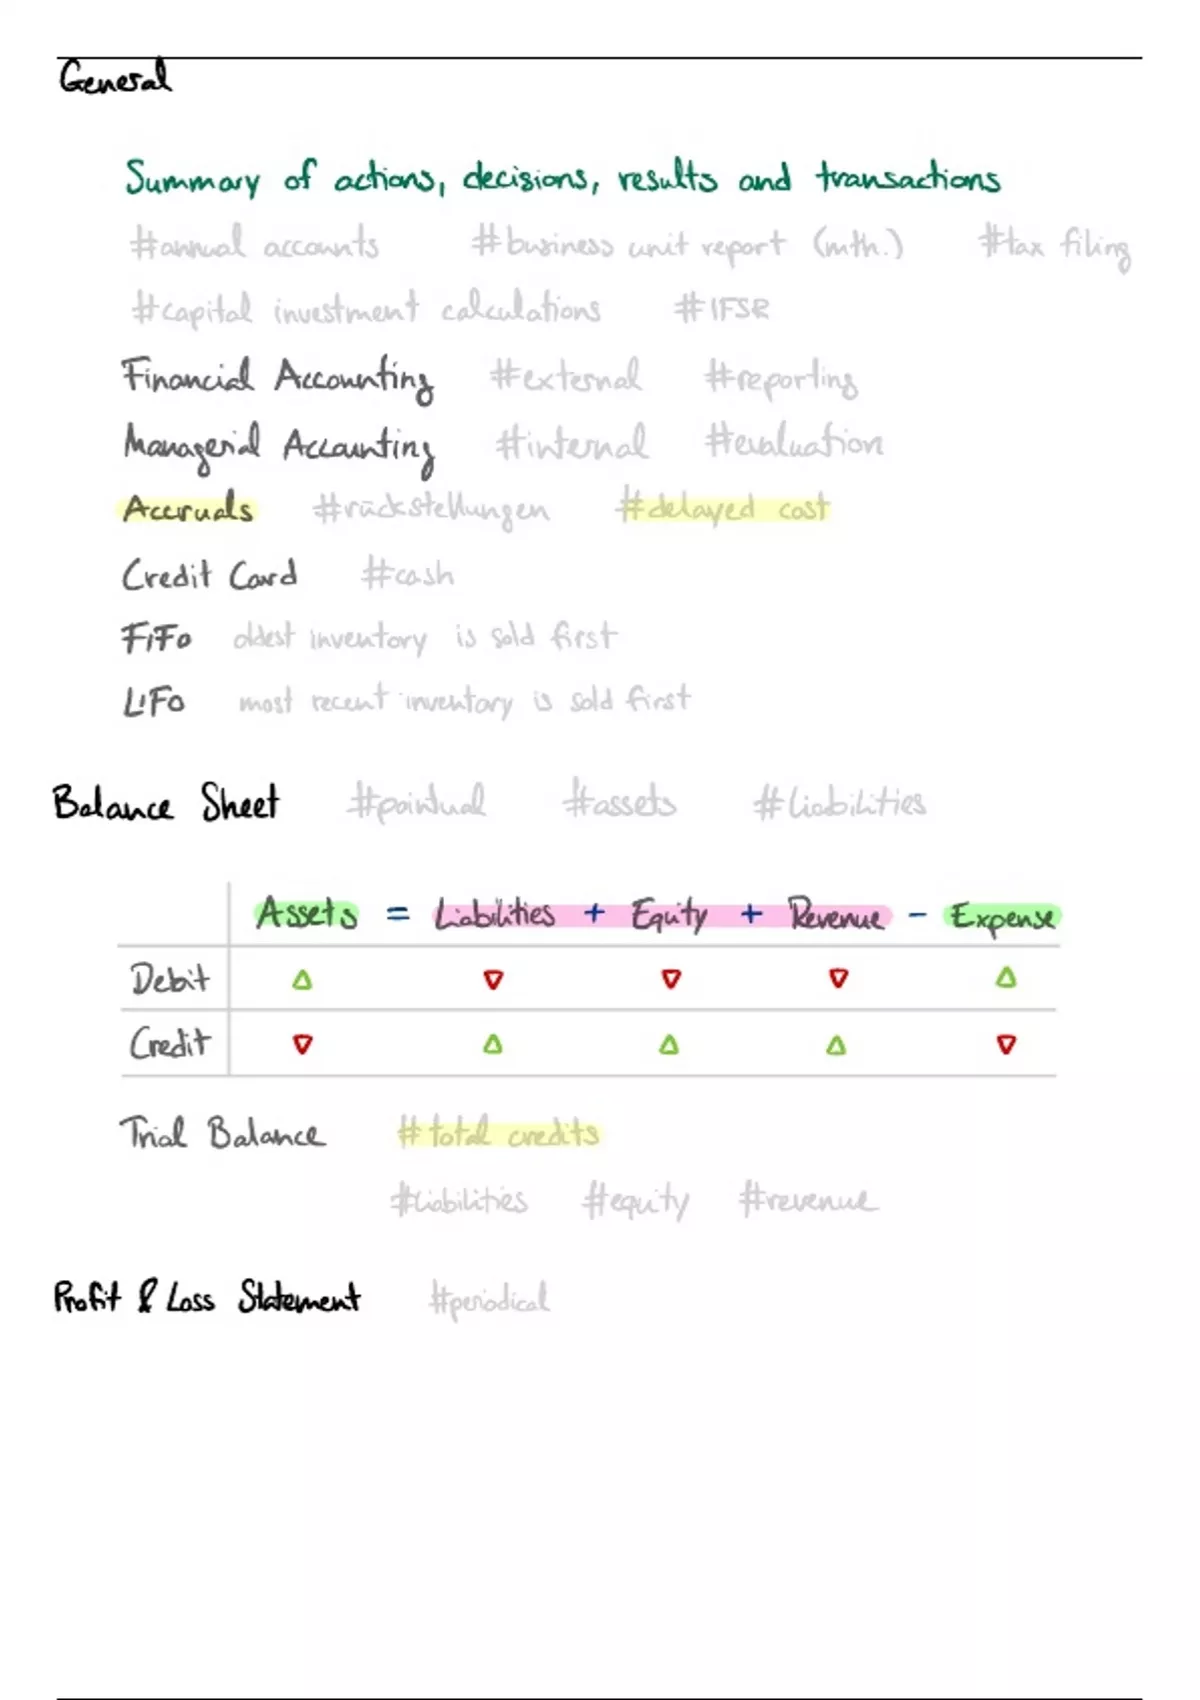 General
Summary of actions, decisions, results and transactions
#annual accounts #business unit report (mth.) #tax filing
#capital investment calculations #IFSR
Financial Accounting #external #reporting
Managerial Accounting #internal #evaluation
Accruals #rückstellungen #delayed cost
Credit Card #cash
FiFo oldest inventory is sold first
LiFo most recent inventory is sold first
Balance Sheet #pointual #assets #liabilities
Assets = Liabilities + Equity + Revenue - Expense
Debit △ ▽ ▽ ▽ △
Credit ▽ △ △ △ ▽
Trial Balance #total credits
#liabilities #equity #revenue
Profit & Loss Statement #periodical